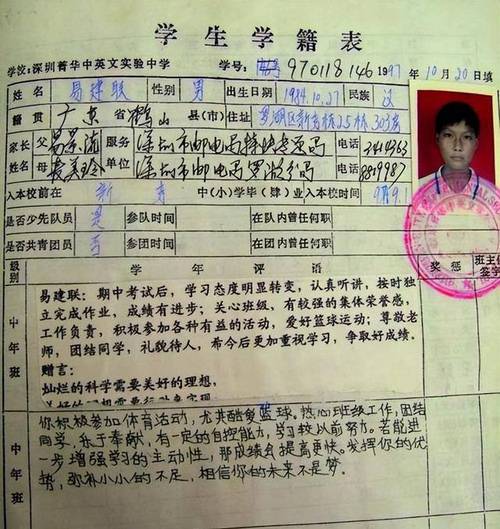 学生学籍表
学校:深圳菁华中英文实验中学 学号: 970118146 1997年10月20日填
姓名 易建联 性别 男 出生日期 1984.10.27 民族 汉
籍贯 广东省鹤山县(市) 住址
家长姓名 父 易景流 服务单位 深圳市邮电局 电话
母 电话
入本校前在 中(小)学毕(肄)业入本校时间
是否少先队员 是 参队时间 在队内曾任何职
是否共青团员 否 参团时间 在团内曾任何职
级别 学年评语 奖惩 班主任签字
中年班
易建联:期中考试后,学习态度明显转变,认真听讲,按时独
立完成作业,成绩有进步;关心班级,有较强的集体荣誉感,
工作负责,积极参加各种有益的活动,爱好篮球运动;尊敬老
师,团结同学,礼貌待人,希今后更加重视学习,争取好成绩。
赠言:
灿烂的科学需要美好的理想,
美好的理想需要行动来实现
中年班
你积极参加体育活动,尤其酷爱篮球。热心班级工作,团结
同学,乐于奉献,有一定的自控能力,学习较以前努力。若能进
一步增强学习的主动性,那成绩会提高更快。发挥你的优
势,弥补小小的不足,相信你的未来不是梦。